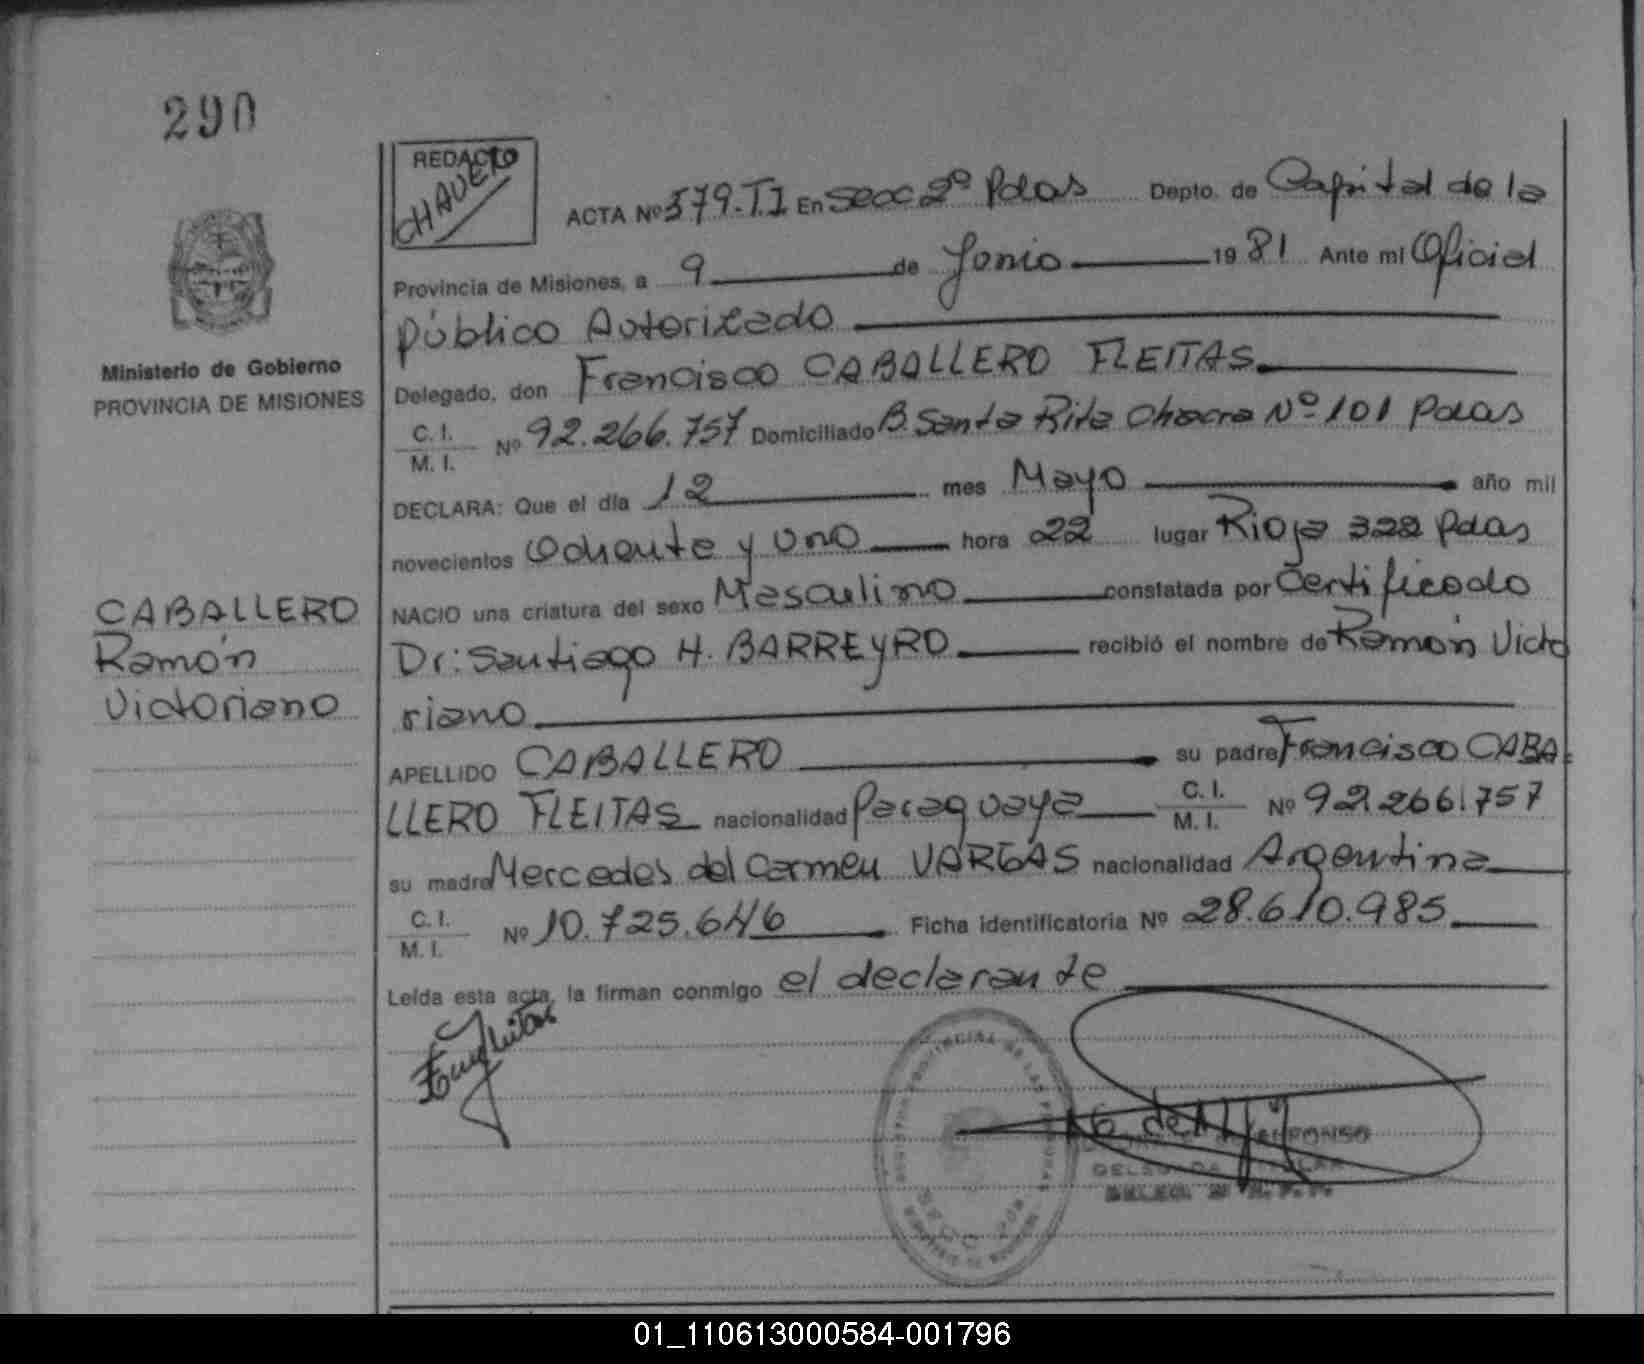 290
REDACTO
CHAVERO
ACTA Nº 579.T.I En Secc 2º Pdas Depto. de Capital de la
Provincia de Misiones, a 9 de Junio 1981 Ante mi Oficial
Público Autorizado
Delegado, don Francisco CABALLERO FLEITAS.
C. I.
M. I. Nº 92.266.757 Domiciliado B. Santa Rita Chacra Nº 101 Pdas
DECLARA: Que el día 12 mes Mayo año mil
novecientos Ochenta y Uno hora 22 lugar Rioja 322 Pdas
NACIO una criatura del sexo Masculino constatada por Certificado
Dr: Santiago H. BARREYRO recibió el nombre de Ramón Victo
riano
APELLIDO CABALLERO su padre Francisco CABA-
LLERO FLEITAS nacionalidad Paraguaya C. I.
M. I. Nº 92.266.757
su madre Mercedes del Carmen VARGAS nacionalidad Argentina
C. I.
M. I. Nº 10.725.646 Ficha identificatoria Nº 28.610.985
Leída esta acta, la firman conmigo el declarante
Ministerio de Gobierno
PROVINCIA DE MISIONES
CABALLERO
Ramón
Victoriano
ALFONSO
DELEGADA TITULAR
01_110613000584-001796